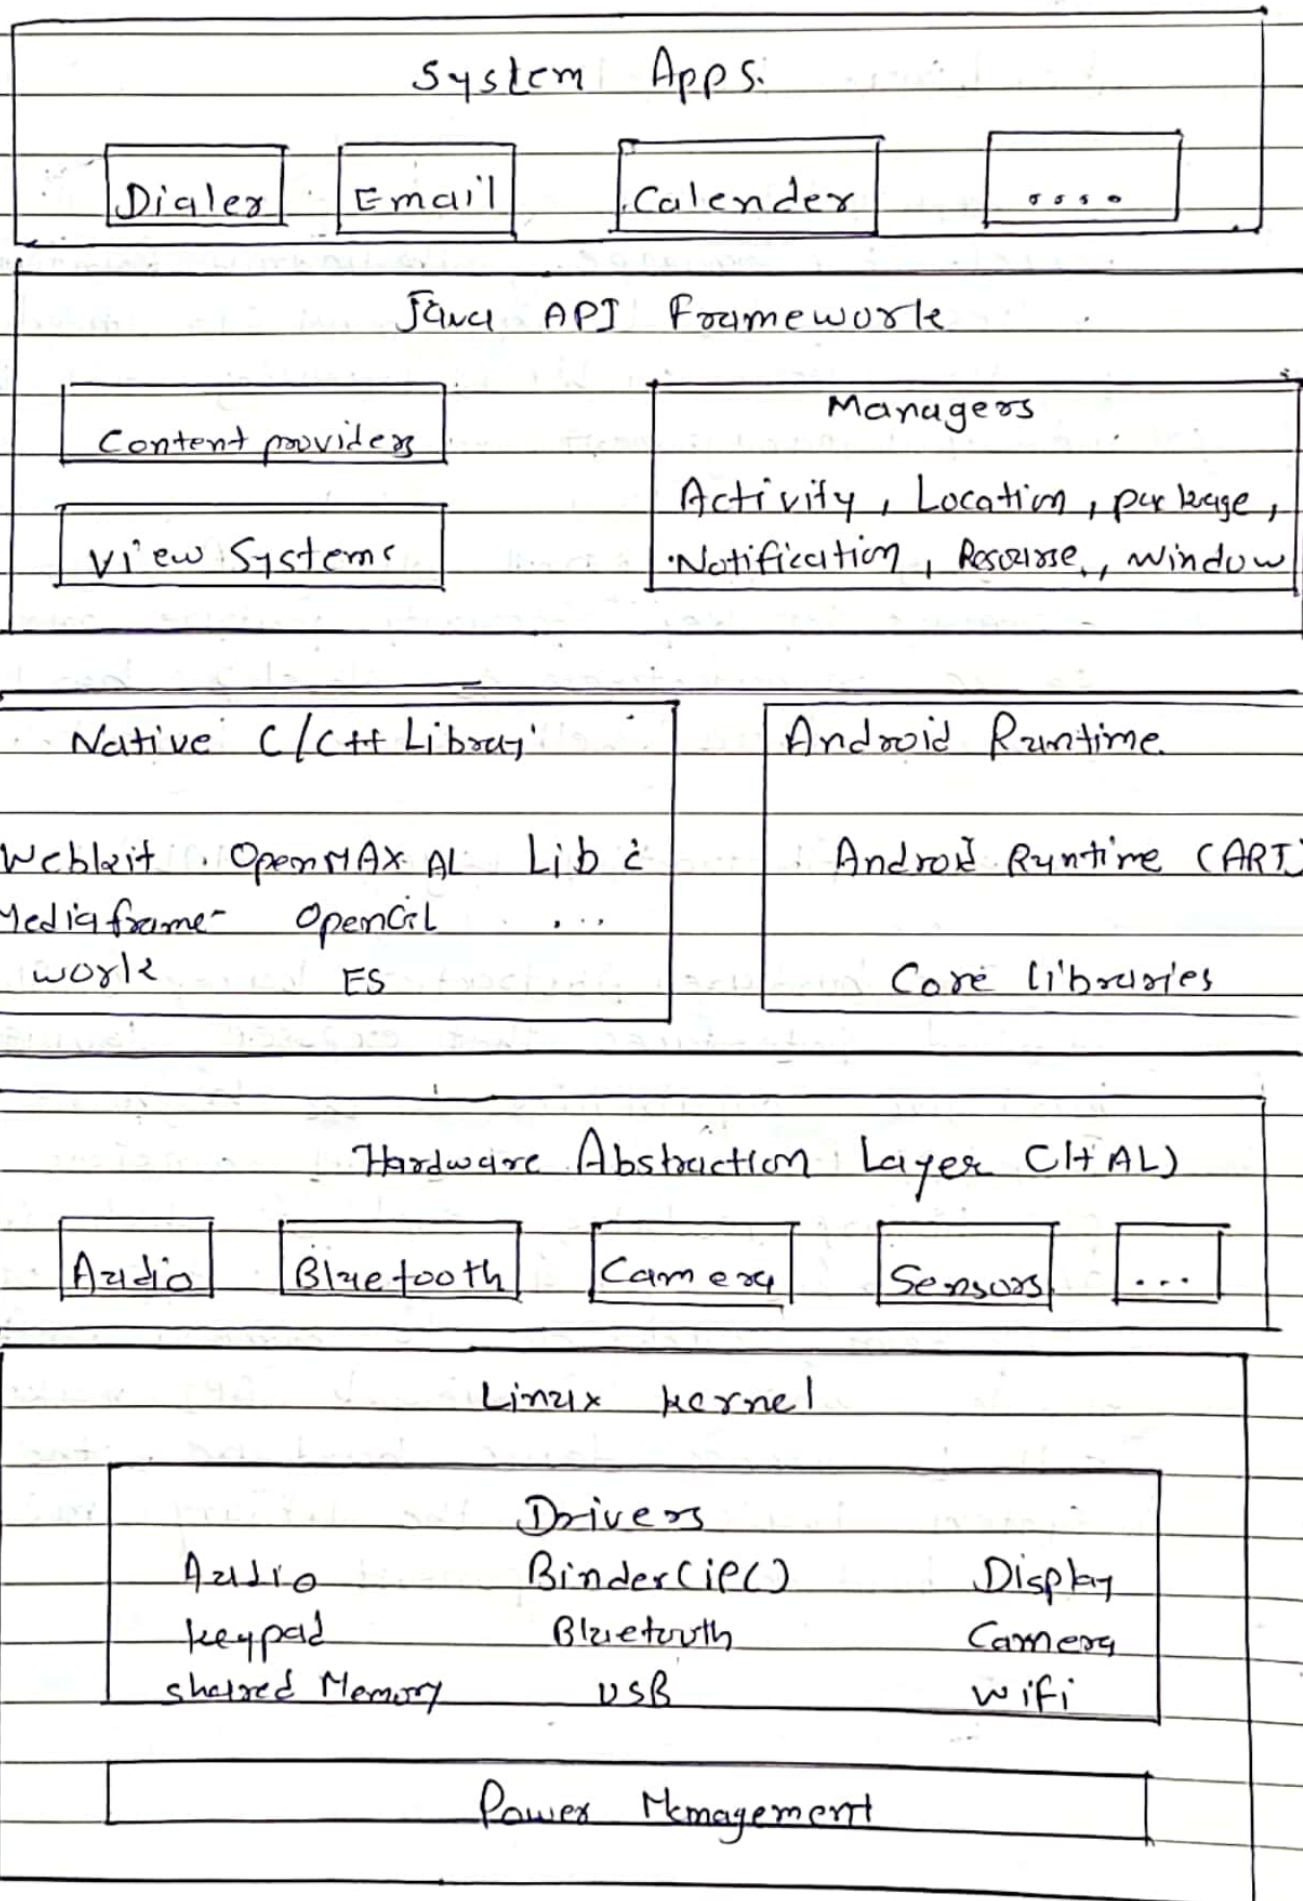 System Apps.
Dialer Email Calender ....
Java API Framework
Content providers
View Systems
Managers
Activity, Location, package,
Notification, Resourse, window
Native C/C++ Library
Webkit OpenMAX AL Lib c
Media frame- OpenGL ...
work ES
Android Runtime
Android Runtime (ART)
Core libraries
Hardware Abstraction Layer (HAL)
Audio Bluetooth Camera Sensors ...
Linux kernel
Drivers
Audio Binder (IPC) Display
keypad Bluetooth Camera
shared Memory USB wifi
Power Management